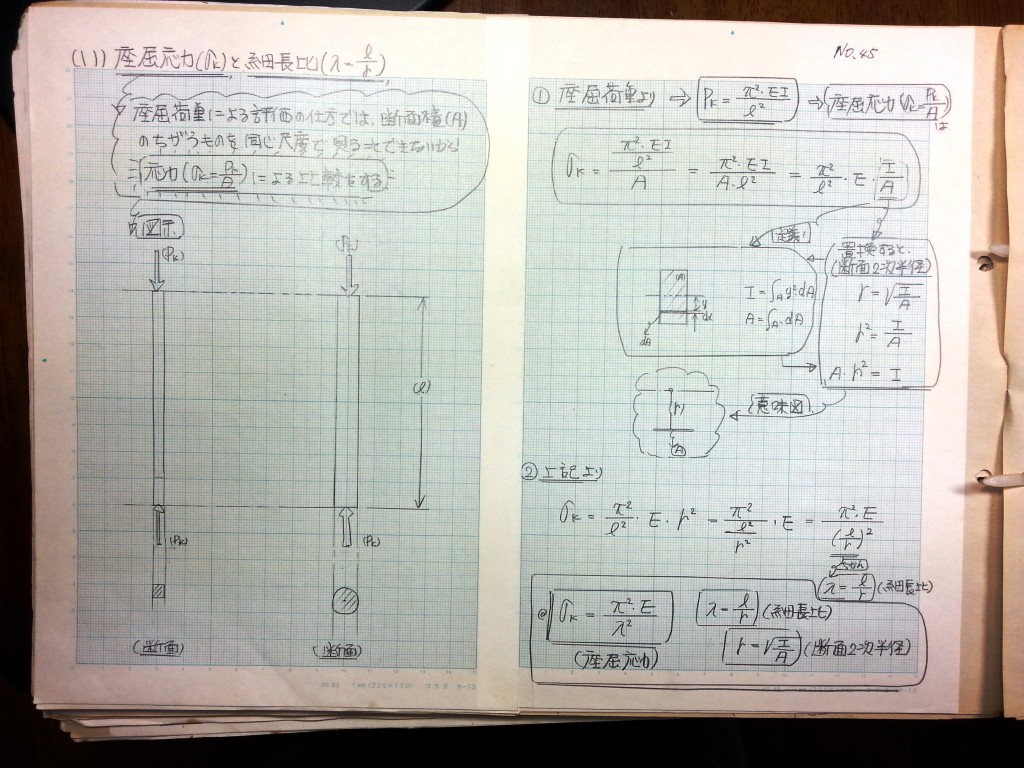 (11) 座屈応力(σk)と細長比(λ=l/r)
座屈荷重による評価の仕方では、断面積(A)
のちがうものを同じ尺度で見ることできないから
応力(σk=Pk/A)による比較をする。
図示
(Pk) (Pk)
(l)
(Pk) (Pk)
(断面) (断面)
No.45
① 座屈荷重より → Pk=π²·EI/l² → 座屈応力(σk=Pk/A)は
σk = (π²·EI/l²)/A = π²·EI/(A·l²) = π²/l²·E·I/A
定義
置換すると、
(断面2次半径)
r=√(I/A)
r²=I/A
A·r²=I
(A)
y
dA
I=∫A y²dA
A=∫A·dA
意味図
(r)
(A)
② 上記より
σk = π²/l²·E·r² = π²/(l²/r²)·E = π²·E/(l/r)²
λ=l/r (細長比)
@ σk=π²·E/λ² λ=l/r (細長比)
(座屈応力) r=√(I/A) (断面2次半径)